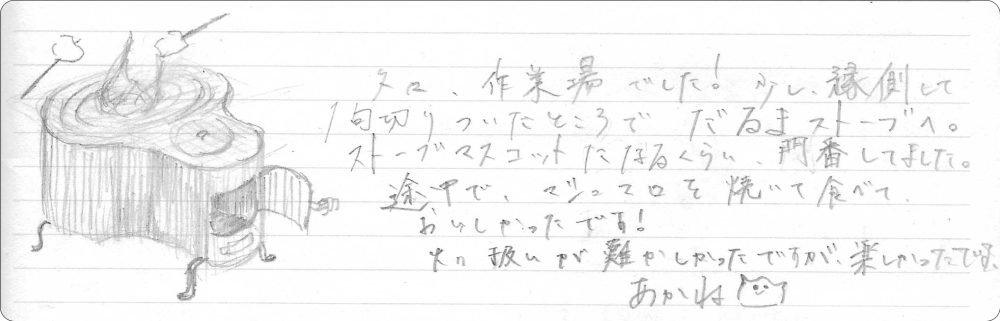 タロ、作業場でした!少し、縁側して
1句切りついたところで だるまストーブへ。
ストーブマスコットになるくらい、門番してました。
途中で、マシュマロを焼いて食べて、
おいしかったです!
火の扱いが難かしかったですが、楽しかったです。
あかね